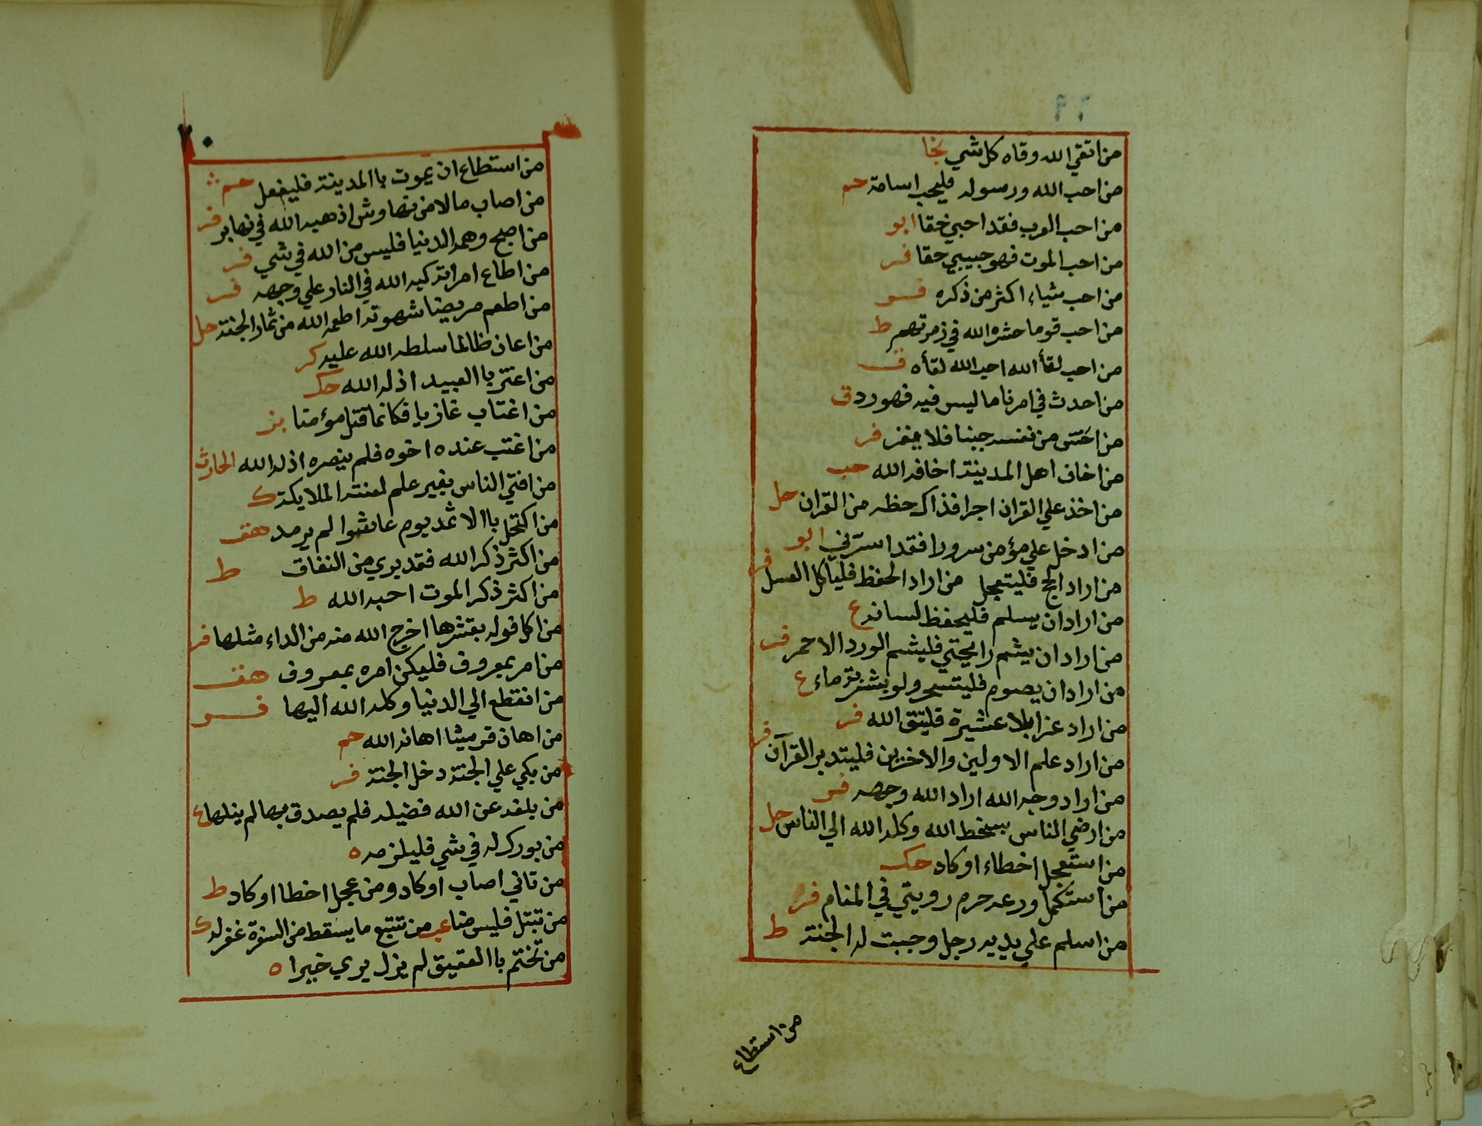 ٦٩
من اتقي الله وقاه كل شي نجا
من احب الله ورسوله فليحب اسامة حم
من احب العرب فقد احبي حقا ابو
من احب الموت فهو حبيبي حقا فر
من احب شياء اكثر من ذكره فر
من احب قوما حشره الله في زمرتهم ط
من احب لقأ الله احب الله لقأه ق
من احدث في امرنا ما ليس فيه فهو رد ق
من نفسه جبنا فلا يغز فر
من اخاف اهل المدينة اخافه الله حب
من اخذ علي القران اجرا فذاك حظه من القران حل
من ادخل علي مؤمن سرورا فقد استرني ابو
من اراد الحج فليتعجل من اراد الحفظ فلياكل العسل فر
من اراد ان يسلم فليحفظ لسانه ع
من اراد ان يشم رايحتي فليشم الورد الاحمر فر
من اراد ان يصوم فليتسحر ولو بشربة ماء ع
من اراد عزا بلا عشيرة فليتق الله فر
من اراد علم الاولين والاخرين فليتدبر القرآن فر
من اراد وجه الله اراد الله وجهه فر
من ارضي الناس بسخط الله وكله الله الي الناس حل
من استعجل اخطاء اوكاد حك
من استكمل ورعه حرم رويتي في المنام فر
من اسلم علي يديه رجل وجبت له الجنة ط
من استطاع
٧٠
من استطاع ان يموت باالمدينة فليفعل حم
من اصاب مالا من نهاوش اذهبه الله في نهابر فر
من اصبح وهمه الدنيا فليس من الله في شي فر
من اطاع امراته كبه الله في النار علي وجهه فر
من اطعم مريضا شهوته اطعمه الله من ثمار الجنة حل
من اعان ظالما سلطه الله عليه كر
من اعتز باالعبيد اذله الله حك
من اغتاب غازيا فكانما قتل مؤمنا بز
من اغتب عنده اخوه فلم ينصره اذله الله الحارث
من افتي الناس بغير علم لعنته الملايكة ك
من اكتحل باالاثمد يوم عاشوا لم يرمد هق
من اكثر ذكر الله فقد بري من النفاق ط
من اكثر ذكر الموت احبه الله ط
من اكل فوله بقشرها اخرج الله منه من الداء مثلها فر
من امر بمعروف فليكن امره بمعروف هق
من انقطع الي الدنيا وكله الله اليها فر
من اهان قريشا اهانه الله حم
من بكي علي الجنة دخل الجنة فر
من بلغه عن الله فضيله فلم يصدق بها لم ينلها ع
من بورك له في شي فليلزمه ه
من تاني اصاب اوكاد ومن عجل اخطا اوكاد ط
من تبتل فليس منا عب من تتبع ما يسقط من السفرة غفر له ك
من تختم باالعقيق لم يزل يري خيرا ه